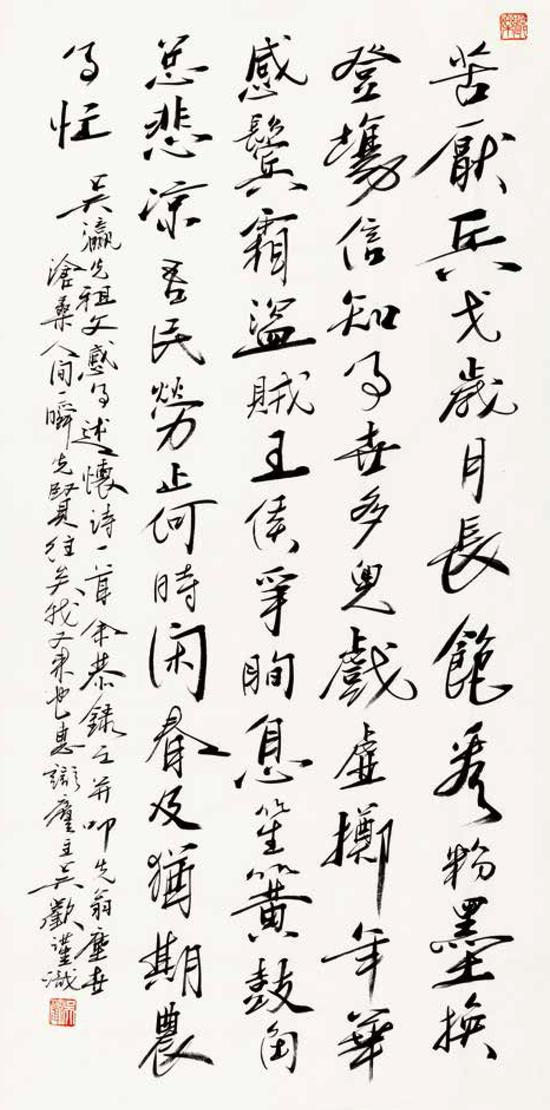 苦厭兵戈歲月長飽看粉墨換
登場信知事世多兒戲虛擲年華
感鬢霜盜賊王侯爭眴息笙簧鼓角
总悲凉吾民勞止何時閑春及猶期農
事忙
吳瀛先祖父感事述懷詩一首余恭錄之并叩先翁塵世
滄桑人間一瞬先賢往矣我又来也廬主吳歡謹識